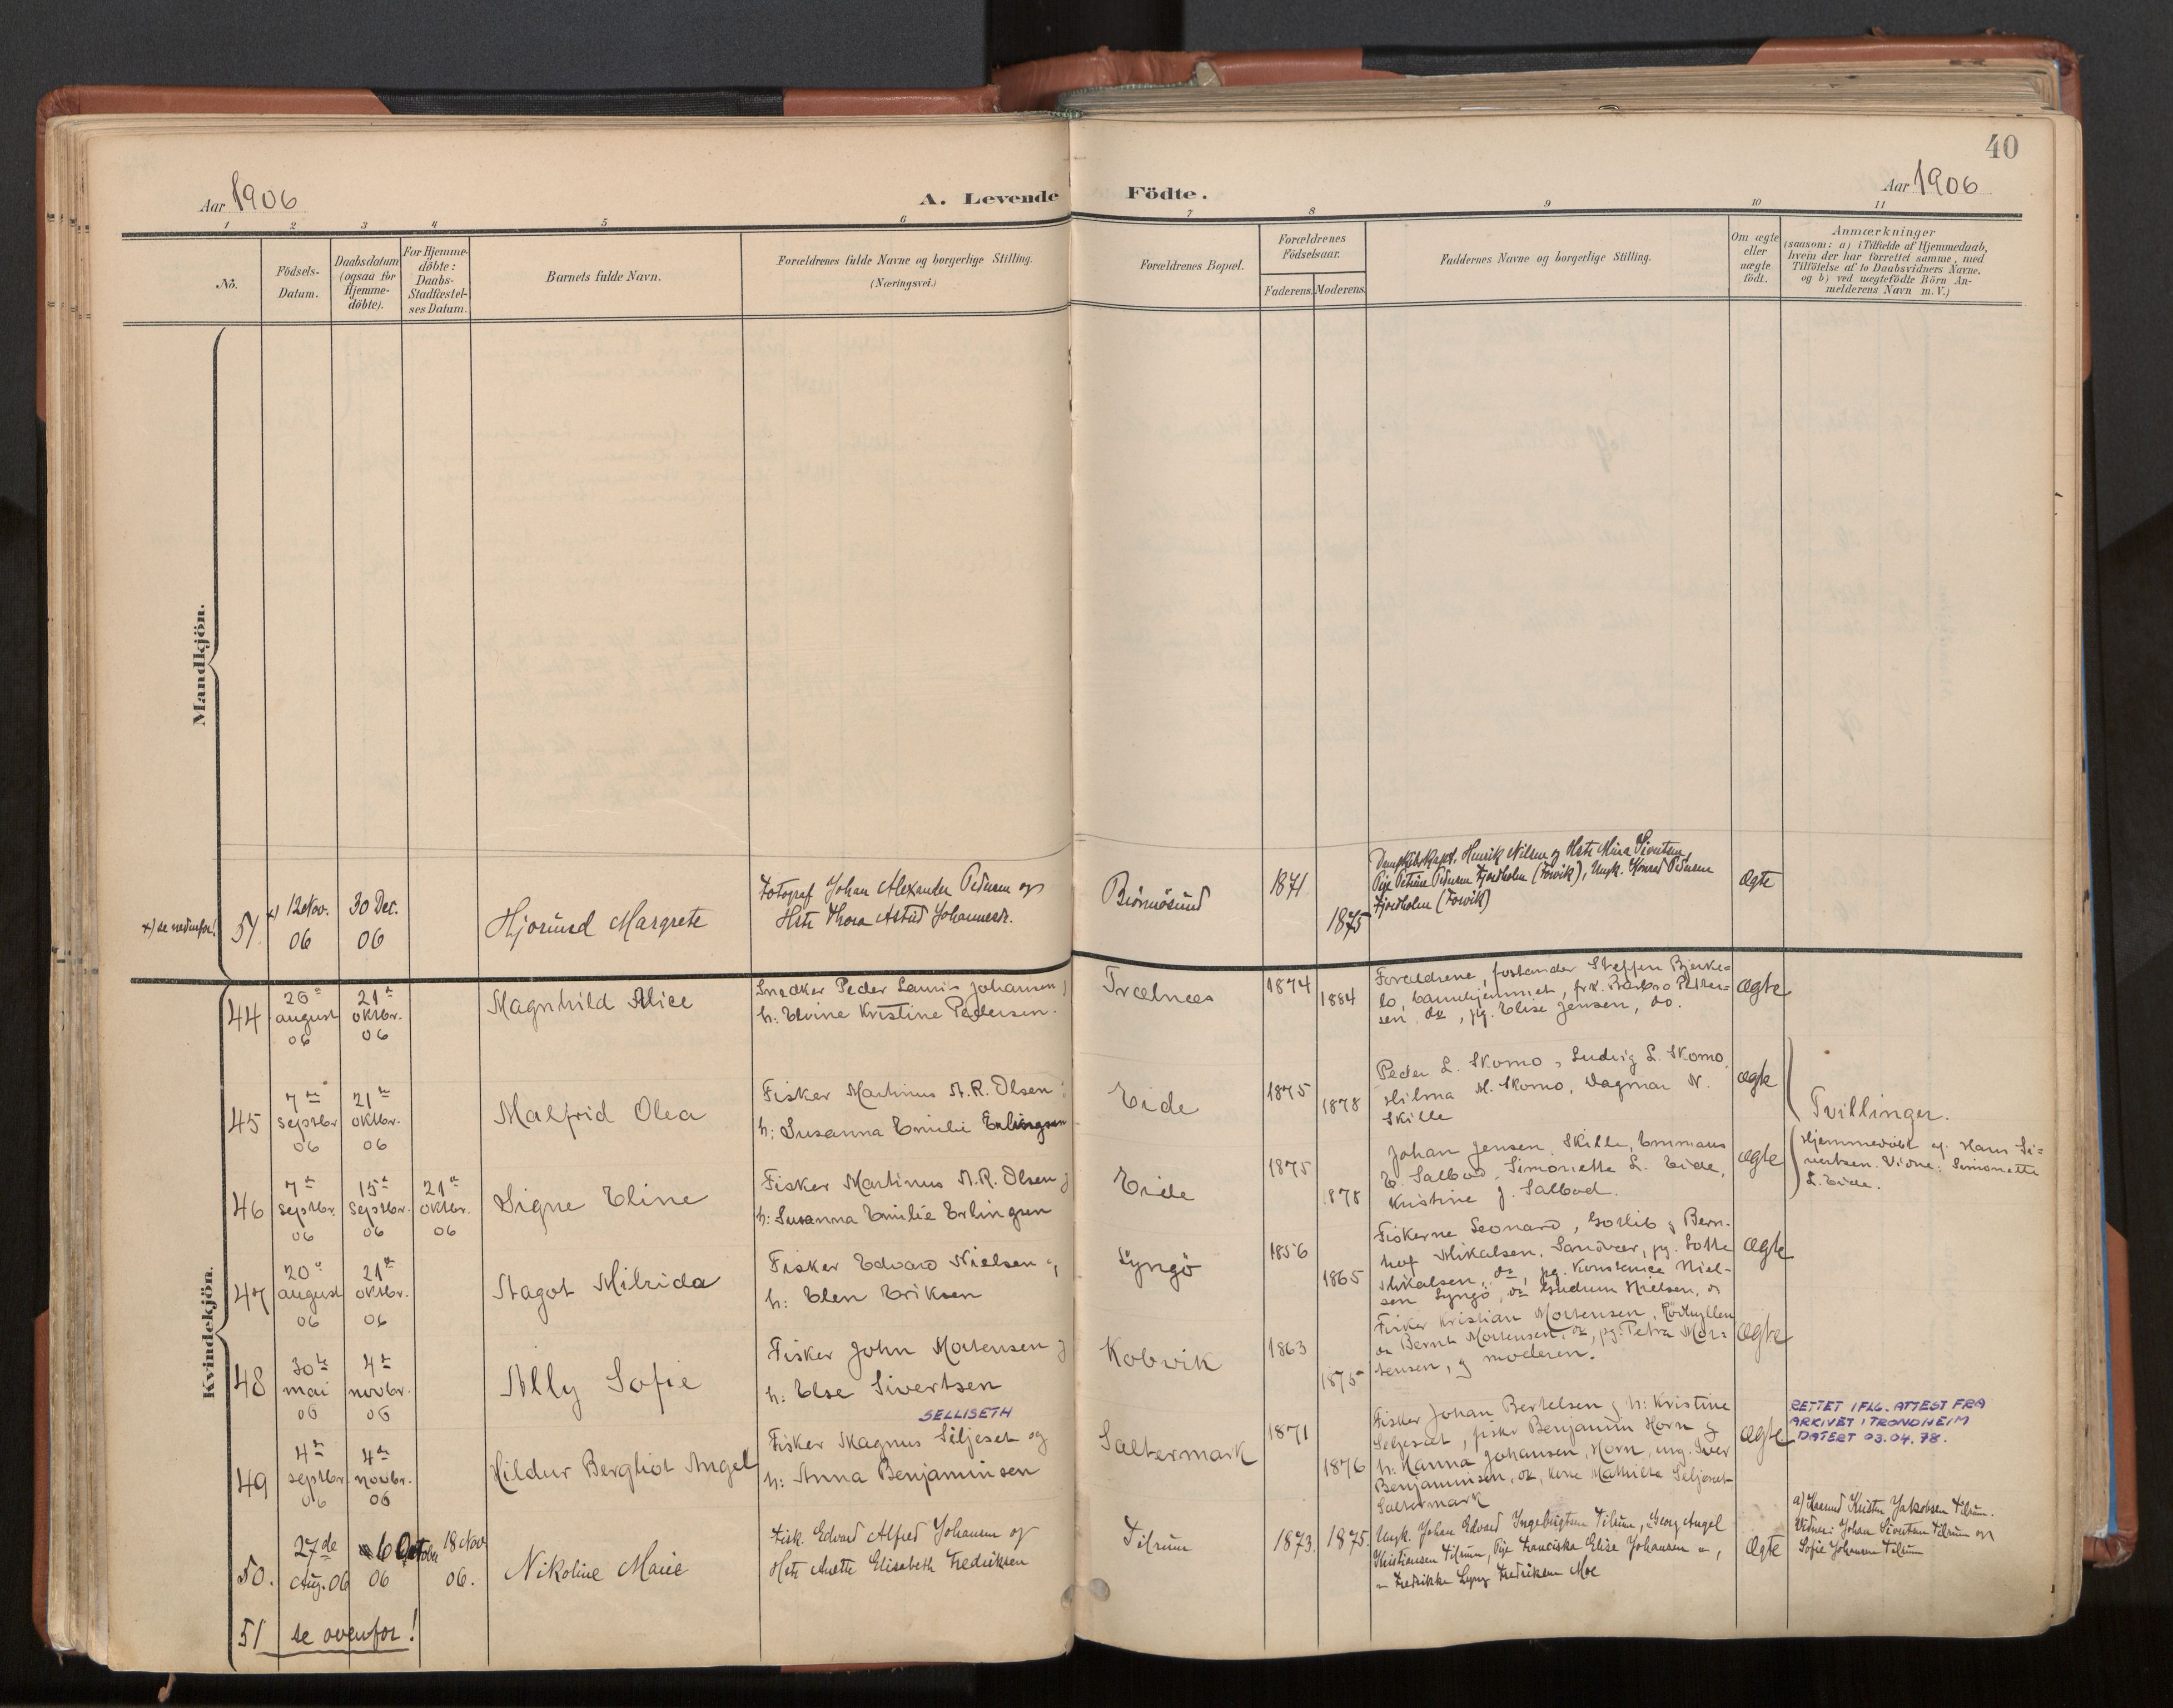 40
Aar 1906
A. Levende Födte.
Aar 1906
1 2 3 4 5 6 7 8 9 10 11
Nô.
Födsels-
Datum.
Daabsdatum
(ogsaa for
Hjemme-
döbte).
For Hjemme-
döbte:
Daabs-
Stadfæstel-
ses Datum.
Barnets fulde Navn.
Forældrenes fulde Navne og borgerlige Stilling.
(Næringsvei.)
Forældrenes Bopæl.
Forældrenes
Födselsaar.
Faderens. Moderens.
Faddernes Navne og borgerlige Stilling.
Om ægte
eller
uægte
födt.
Anmærkninger
(saasom: a) i Tilfælde af Hjemmedaab,
hvem der har forrettet samme, med
Tilföielse af to Daabsvidners Navne.
og b) ved uægtefödte Börn An-
melderens Navn m. V.)
Mandkjön.
x) se nedenfor!
51
x) 12 Nov.
06
30 Dec.
06
Hjörund Margrete
Fotograf Johan Alexander Pedersen og
Hstr Thora Astrid Johannesdr.
Brönösund
1871
1875
Dampskibskapt. Henrik Nilsen og Hstr Mina Sivertsen,
Pige Petrine Pedersen Fjordholm (Forvik), Ungk. Konrad Pedersen
Fjordholm (Forvik)
Ægte
Kvindekjön.
44
26de
august
06
21de
oktbr.
06
Magnhild Alice
Snedker Peder Lauris Johansen
h: Elvine Kristine Pedersen.
Trælnes
1874
1884
Forældrene, forstander Steffen Bjerke-
lo, barnehjemmet, frk. Barbro Petter-
sen, do, pg. Elise Jensen, do.
ægte
45
7de
septbr
06
21de
oktbr.
06
Malfrid Olea
Fisker Martinus A.R. Olsen
h: Susanna Emilie Erlingsen
Eide
1875
1878
Peder L. Skomo, Ludvig L. Skomo,
Hilma M. Skomo, Dagmar N.
Skille
ægte
Tvillinger.
46
7de
septbr.
06
15de
septbr.
06
21de
oktbr.
06
Signe Eline
Fisker Martinus A.R. Olsen
h: Susanna Emilie Erlingsen
Eide
1875
1878
Johan Jensen Skille, Emmaus
E. Salbod, Simonette L. Eide,
Kristine J. Salbod.
ægte
Hjemmedöbt af Hans Si-
vertsen. Vidne: Simonette
L. Eide.
47
20de
august
06
21de
oktbr.
06
Aagot Milrida
Fisker Edvard Nielsen
h: Elen Eriksen
Lyngö
1856
1865
Fiskerne Leonard, Gotlib & Bern-
hof Mikalsen, Sandvær, pg. Lotte
Mikalsen, do, pg. Konstanse Niel-
sen Lyngö, do Gudrun Nielsen, do
ægte
48
30te
mai
06
4de
novbr.
06
Ally Sofie
Fisker John Mortensen
h: Else Sivertsen
Kobvik
1863
1875
Fisker Kristian Mortensen, Rödhyllen
do Bernt Mortensen, do, pg: Petra Mor-
tensen, & moderen.
ægte
49
4de
septbr
06
4de
novbr.
06
Hildur Berghot Angel
SELLISETH
Fisker Magnus Siljeset og
h: Anna Benjaminsen
Saltermark
1871
1876
Fisker Johan Bertelsen & h: Kristine
Seljesæt, fisker Benjamin Horn &
h: Hanna Johansen, Horn, ung. Iver
Benjaminsen, do, kone Mathilde Seljeset
Saltermark
ægte
RETTET IFLG. ATTEST FRA
ARKIVET I TRONDHEIM
DATERT 03.04.78.
50.
27de
Aug. 06
6 October
06
18 Nov.
06.
Nikoline Marie
Fisk. Edvard Alfred Johansen og
Hstr Anette Elisabeth Fredriksen
Tilrum
1873.
1875.
Ungk. Johan Edvard Ingebrigtsen Tilrum, Georg Angel
Kristiansen Tilrum, Pige Franciska Elise Johansen ",
" Fredrikke Lyng Fredriksen Moe
Ægte
a) Kristen Jakobsen Tilrum.
Vidner: Johan Sivertsen Tilrum og
Sofie Johansen Tilrum
51 se ovenfor!